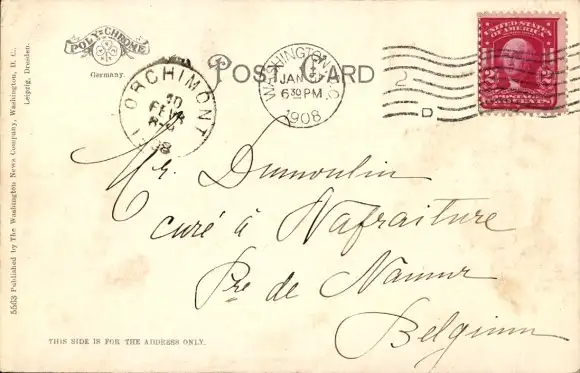 POLY-CHROME
Germany.
POST CARD
WASHINGTON, D.C.
JAN
6 30 PM
1908
D
2
ORCHIMONT
10
FEVR
8-
08
UNITED STATES
OF AMERICA
2 2
POSTAGE
TWO CENTS
Mr. Dumoulin
curé à Nafraiture
Pce de Namur
Belgium
THIS SIDE IS FOR THE ADDRESS ONLY.
5563 Published by The Washington News Company, Washington, D. C.
Leipzig, Dresden.